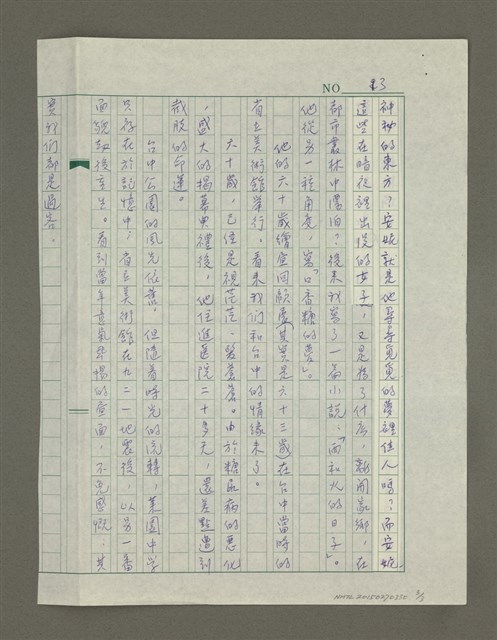 NO 13
神秘的東方?安妮就是他尋尋覓覓的夢裡佳人嗎?而安妮
這些在暗夜裡出沒的女子,又是為了什麼,離開家鄉,在
都市叢林中漂泊?後來我寫了一篇小說,「雨和火的日子」。
他從另一種角度,寫「口香糖的夢」。
他的六十歲繪畫回顧展(其實是六十三歲)在台中當時的
省立美術館舉行。看來我們和台中的情緣未了。
六十歲,已經是視茫茫、髮蒼蒼。由於糖尿病的惡化
,盛大的揭幕典禮後,他住進醫院二十多天,還差點遭到
截肢的命運。
台中公園的風光依舊,但隨著時光的流轉,菓園中學
只存在於記憶中,省立美術館在九二一地震後,以另一番
面貌劫後重生。看到當年意氣昂揚的畫面,不免感慨:其
實我們都是過客。
NMTL 20150270350 3/3